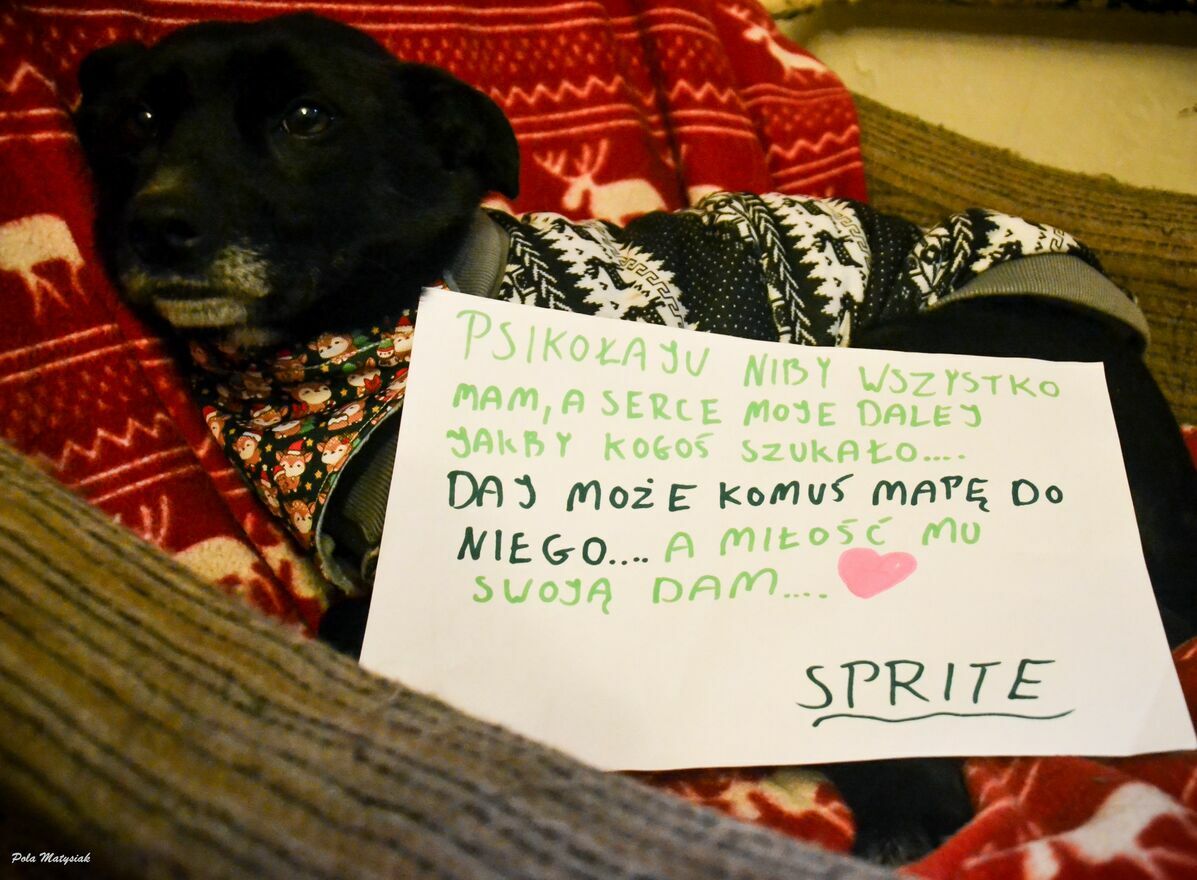 PSIKOŁAJU NIBY WSZYSTKO
MAM, A SERCE MOJE DALEJ
JAKBY KOGOŚ SZUKAŁO....
DAJ MOŻE KOMUŚ MAPĘ DO
NIEGO.... A MIŁOŚĆ MU
SWOJĄ DAM....
SPRITE
Pola Matysiak